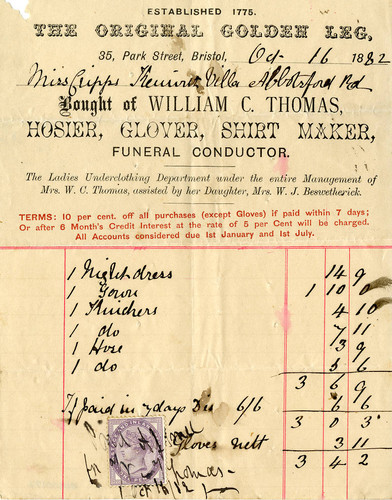 ESTABLISHED 1775.
THE ORIGINAL GOLDEN LEG,
35, Park Street, Bristol, Oct 16 1882
Miss Cripps Kenwith Villa Abbotsford Rd
Bought of WILLIAM C. THOMAS,
HOSIER, GLOVER, SHIRT MAKER,
FUNERAL CONDUCTOR.
The Ladies Underclothing Department under the entire Management of
Mrs. W. C. Thomas, assisted by her Daughter, Mrs. W. J. Beswetherick.
TERMS: 10 per cent. off all purchases (except Gloves) if paid within 7 days;
Or after 6 Month's Credit Interest at the rate of 5 per Cent will be charged.
All Accounts considered due 1st January and 1st July.
1 Nightdress 14 9
1 Gown 1 10 0
1 Knickers 4 10
1 do 7 11
1 Hose 3 9
1 do 5 6
3 6 9
If paid in 7 days Dis 6/6 6 6
3 0 3
Gloves nett 3 11
3 4 2
Thomas
Oct 16/82